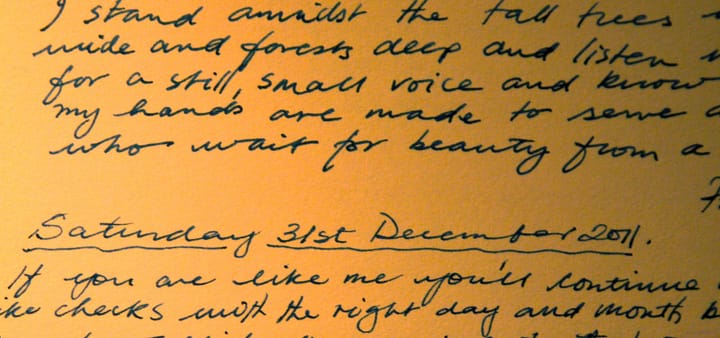 I stand amidst the tall trees
wide and forests deep and listen
for a still, small voice and know
my hands are made to serve
who wait for beauty from a
Saturday 31st December 2011.
If you are like me you'll continue
checks with the right day and month